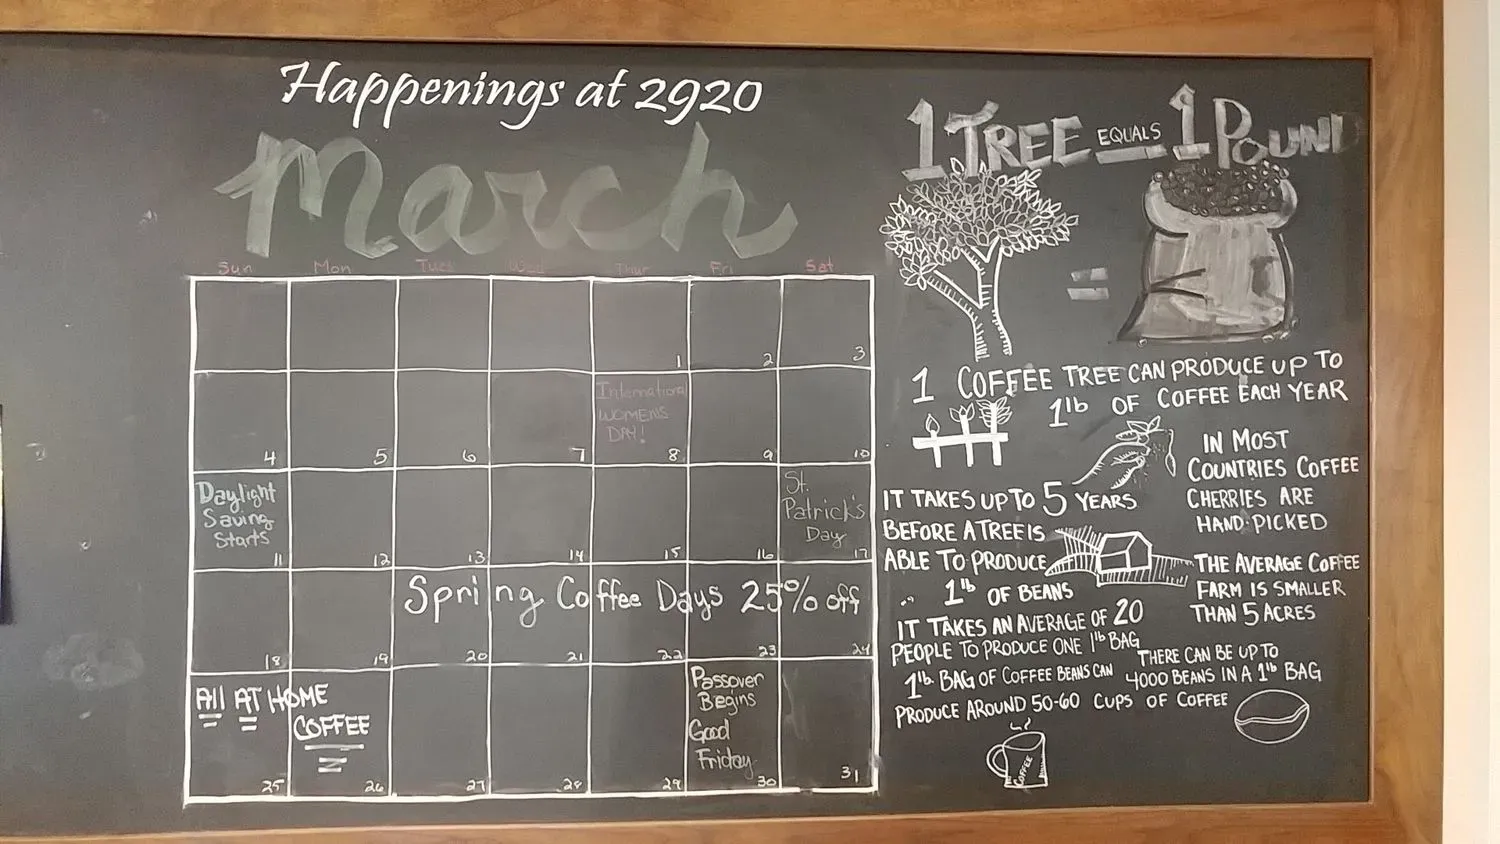 Happenings at 2920
March
Sun Mon Tues Wed Thur Fri Sat
1 2 3
International
WOMENS
DAY!
4 5 6 7 8 9 10
Daylight
Saving
Starts
St.
Patrick's
Day
11 12 13 14 15 16 17
Spring Coffee Days 25% off
18 19 20 21 22 23 24
All AT HOME
COFFEE
Passover
Begins
Good
Friday
25 26 27 28 29 30 31
1 TREE EQUALS 1 POUND
=
1 COFFEE TREE CAN PRODUCE UP TO
1lb OF COFFEE EACH YEAR
IN MOST
COUNTRIES COFFEE
CHERRIES ARE
HAND-PICKED
IT TAKES UP TO 5 YEARS
BEFORE A TREE IS
ABLE TO PRODUCE
1lb OF BEANS
THE AVERAGE COFFEE
FARM IS SMALLER
THAN 5 ACRES
IT TAKES AN AVERAGE OF 20
PEOPLE TO PRODUCE ONE 1lb BAG
1lb. BAG OF COFFEE BEANS CAN
PRODUCE AROUND 50-60 CUPS OF COFFEE
THERE CAN BE UP TO
4000 BEANS IN A 1lb BAG
COFFEE